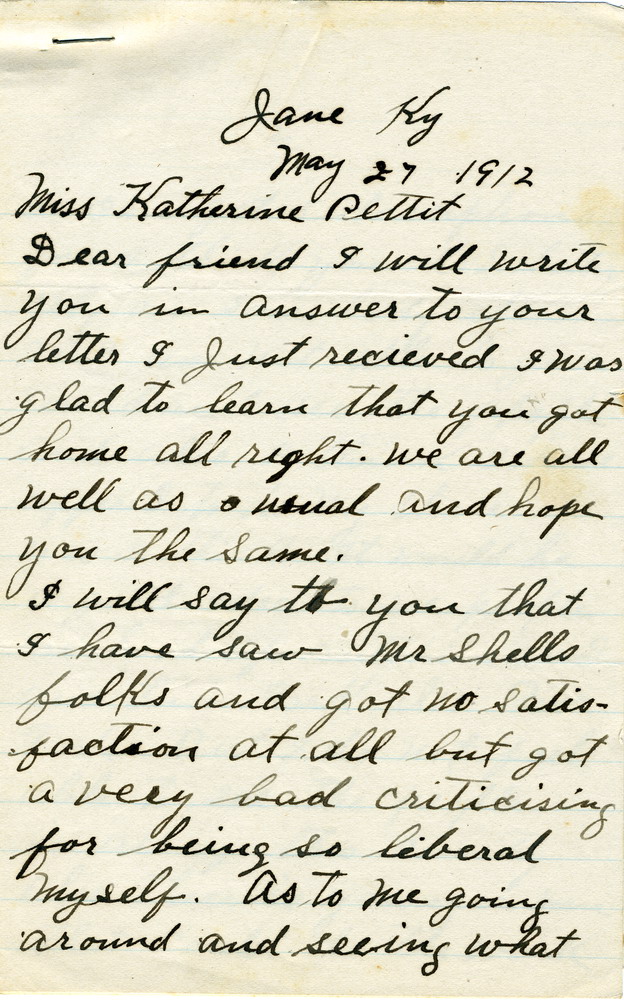 Jane Ky
May 27 1912
Miss Katherine Pettit
Dear friend I will write
you in answer to your
letter I Just recieved I was
glad to learn that you got
home all right. we are all
well as usual and hope
you the same.
I will say to you that
I have saw Mr Shells
folks and got no satis-
faction at all but got
a very bad criticising
for being so liberal
myself. As to me going
around and seeing what